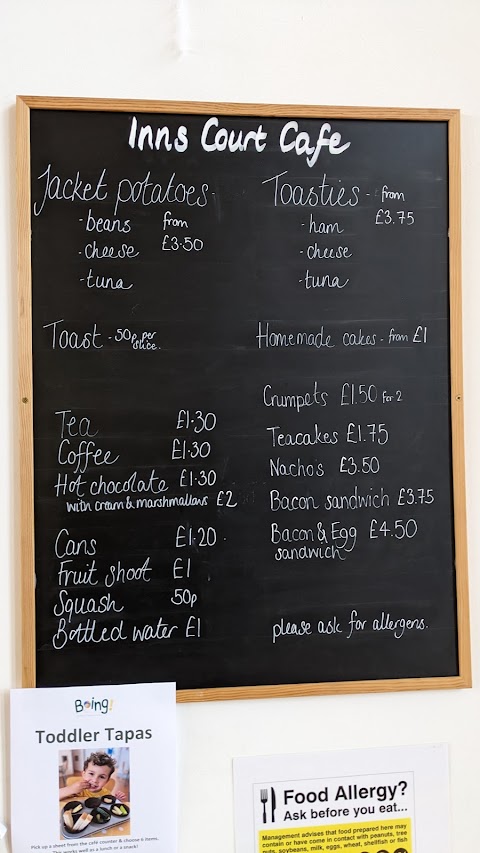 Inns Court Cafe
Jacket potatoes-
-beans
-cheese
-tuna
from
£3.50
Toasties -
from
£3.75
-ham
-cheese
-tuna
Toast - 50p per slice.
Homemade cakes - from £1
Crumpets £1.50 for 2
Teacakes £1.75
Nachos £3.50
Bacon sandwich £3.75
Bacon & Egg £4.50
sandwich
Tea £1.30
Coffee £1.30
Hot chocolate £1.30
with cream & marshmallows £2
Cans £1.20.
Fruit shoot £1
Squash 50p
Bottled water £1
please ask for allergens.
Boing!
Toddler Tapas
Pick up a sheet from the café counter & choose 6 items.
works well as a lunch or a snack!
Food Allergy?
Ask before you eat...
Management advises that food prepared here may
contain or have come in contact with peanuts, tree
nuts, soybeans, milk, eggs, wheat, shellfish or fish